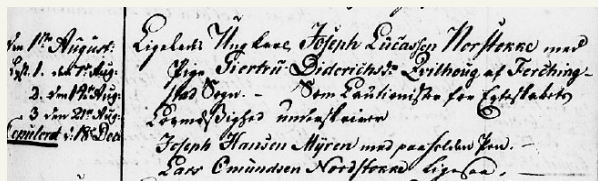 den 1ste August:
Lyst. 1. den 7de Aug:
2. den 14de Aug:
3 den 21de Aug:
Copuleret d: 18de Dec
Ligeledes Ungkarl Joseph Lucassen Norstokke med
Pige Giertru Diderichsdr Qvilhoug af Ferching-
stad Sogn. - Som Cautionister for Egteskabets
Lovmæssighed underskriver
Joseph Hansen Myren med paaholden Pen. -
Lars Omundsen Nordstokke ligesaa. -